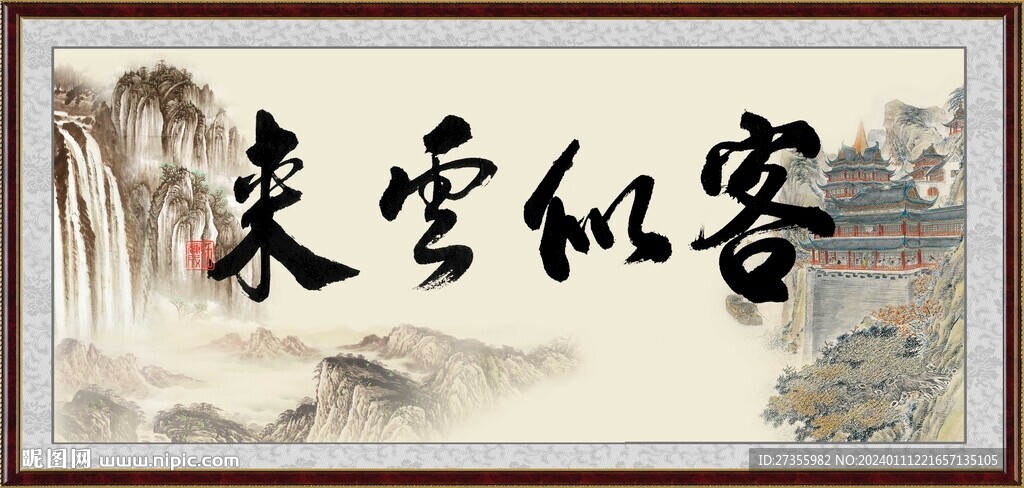 客似雲来
昵图网 www.nipic.com
ID:27355982 NO:20240111221657135105